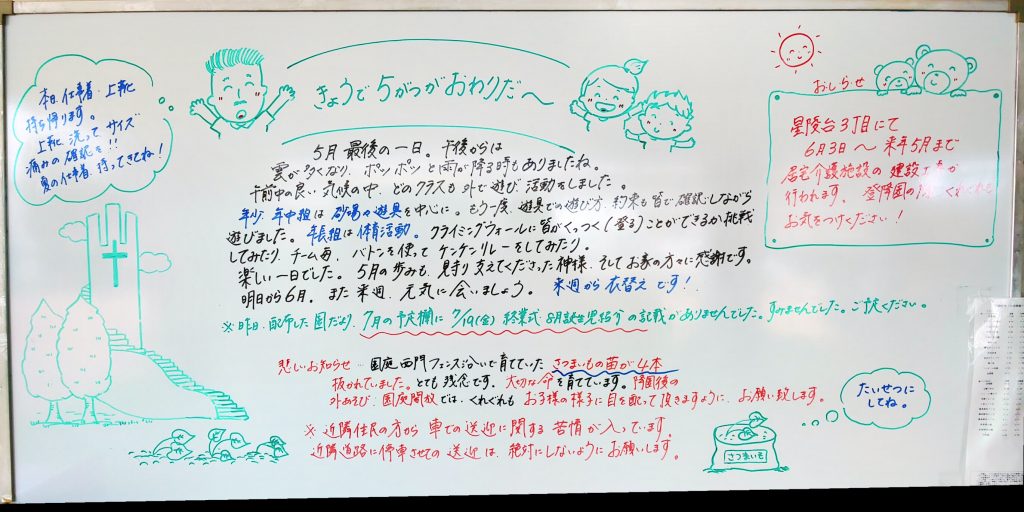 本日、仕事着、上靴
持ち帰ります。
上靴、洗って、サイズ
痛みの確認を!!
夏の仕事着、持ってきてね!
きょうで5がつがおわりだ〜
おしらせ
星陵台3丁目にて
6月3日〜来年5月まで
居宅介護施設の建設工事が
行われます。登降園の際、くれぐれも
お気をつけください!
5月最後の一日。午後からは
雲が多くなり、ポツポツと雨が降る時もありましたね。
午前中の良い気候の中、どのクラスも外で遊び、活動をしました。
年少、年中組は砂場や遊具を中心に。もう一度、遊具での遊び方、約束も皆で確認しながら
遊びました。年長組は体育活動。クライミングウォールに皆がくっつく(登る)ことができるか挑戦
してみたり、チーム毎、バトンを使ってケンケンリレーをしてみたり。
楽しい一日でした。5月の歩みも、見守り支えてくださった神様、そしてお家の方々に感謝です。
明日から6月。また来週、元気に会いましょう。来週から衣替えです!
※昨日、配布した園だより、7月の予定欄に7/19(金)終業式、8月誕生児招介の記載がありませんでした。すみませんでした。ご承ください。
悲しいお知らせ…園庭西門フェンス沿いで育てていたさつまいもの苗が4本
抜かれていました。とても残念です。大切な命を育てています。降園後の
外あそび、園庭開放では、くれぐれもお子様の様子に目を配って頂きますように、お願い致します。
※近隣住民の方から車での送迎に関する苦情が入っています。
近隣道路に停車させての送迎は、絶対にしないようにお願いします。
たいせつに
してね。
さつまいも